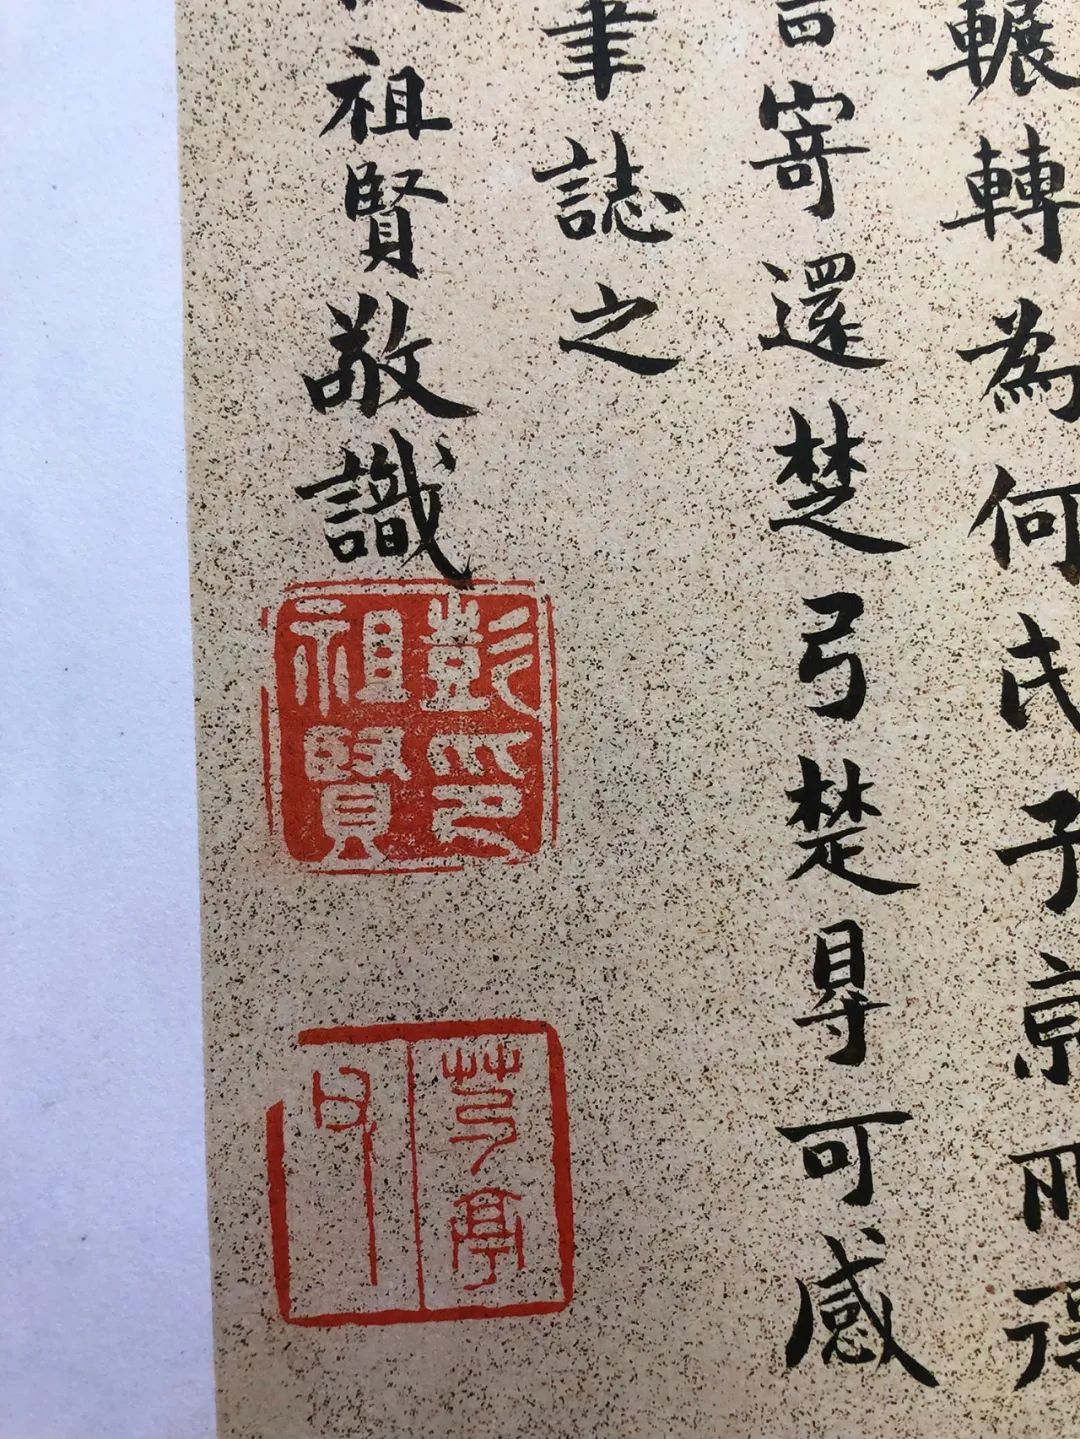 輾轉為何氏子京所得
寄還楚弓楚得可感
筆誌之
祖賢敬識
彭祖賢印
芍亭